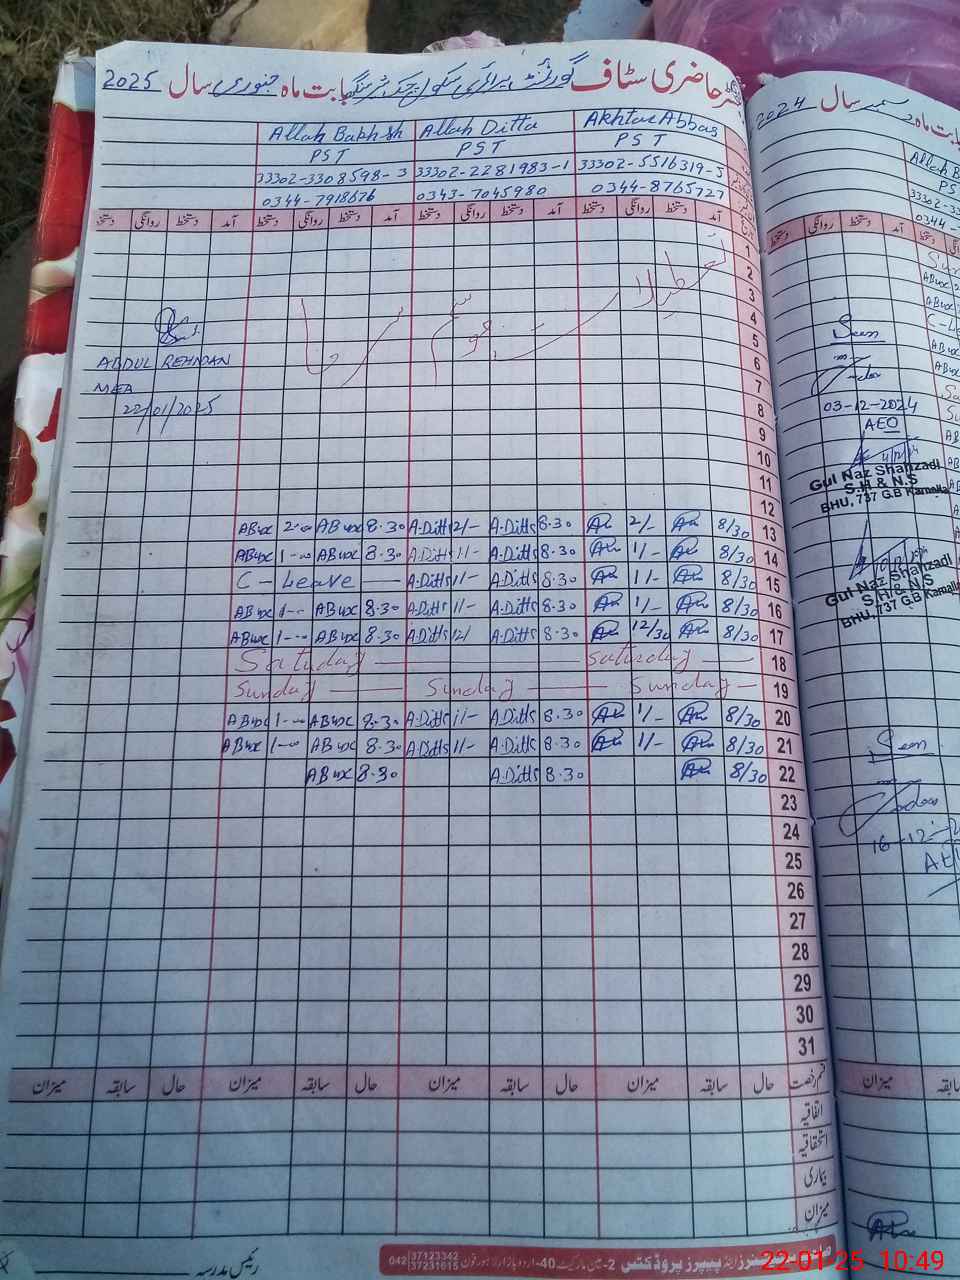 حاضری سٹاف گورنمنٹ پرائمری سکول بابت ماہ جنوری سال 2025
Akhtar Abbas Allah Ditta Allah Bakhsh
PST PST PST
33302-5516319-5 33302-2281983-1 33302-3308598-3
0344-8765727 0343-7045980 0344-7918676
آمد دستخط روانگی دستخط آمد دستخط روانگی دستخط آمد دستخط روانگی دستخط آمد دستخط روانگی دستخط
1
2
3
4
5
6
7
8
9
10
11
12
تعطیلات موسم سرما
ABDUL REHMAN
MEA
22/01/2025
ABux 2-00 ABux 8.30 A.Ditta 2/- A.Ditta 8.30 2/- 8/30 13
ABux 1-00 ABux 8.30 A.Ditta 1/- A.Ditta 8.30 1/- 8/30 14
C-Leave A.Ditta 1/- A.Ditta 8.30 1/- 8/30 15
ABux 1-- ABux 8.30 A.Ditta 1/- A.Ditta 8.30 1/- 8/30 16
ABux 1-00 ABux 8.30 A.Ditta 12/ A.Ditta 8.30 12/30 8/30 17
Saturday Saturday 18
Sunday Sunday Sunday 19
ABux 1-00 ABux 8.30 A.Ditta 1/- A.Ditta 8.30 1/- 8/30 20
ABux 1-00 ABux 8.30 A.Ditta 1/- A.Ditta 8.30 1/- 8/30 21
ABux 8.30 A.Ditta 8.30 8/30 22
23
24
25
26
27
28
29
30
31
قسم رخصت حال سابقہ میزان حال سابقہ میزان حال سابقہ میزان حال سابقہ میزان
اتفاقیہ
استحقاقیہ
بیماری
میزان
رئیس مدرسہ
اینڈ پیپرز پروڈکٹس 2-مین مارکیٹ 40-اردو بازار لاہور فون 042 37123342 37231615
بابت ماہ دسمبر سال 2024
Allah B
PS
33302-33
0344-
آمد دستخط روانگی دستخط
Seen
03-12-2024
AEO
Gul Naz Shahzadi
S.H & N.S
BHU, 737 G.B Kamalia
Gul Naz Shahzadi
S.H & N.S
BHU, 737 G.B Kamalia
Seen
16-12-2
میزان سابقہ
22-01-25 10:49